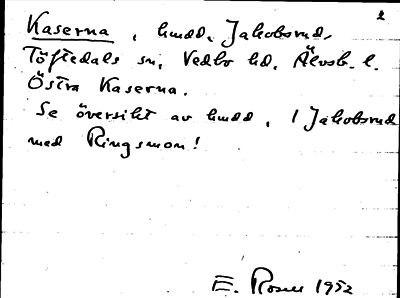 2
Kaserna, hmdd. Jakobsrud,
Töftedals sn, Vedbo hd, Älvsb. l.
Östra Kaserna.
Se översikt av hmdd. / Jakobsrud
med Ringsmon!
E. Rosell 1952